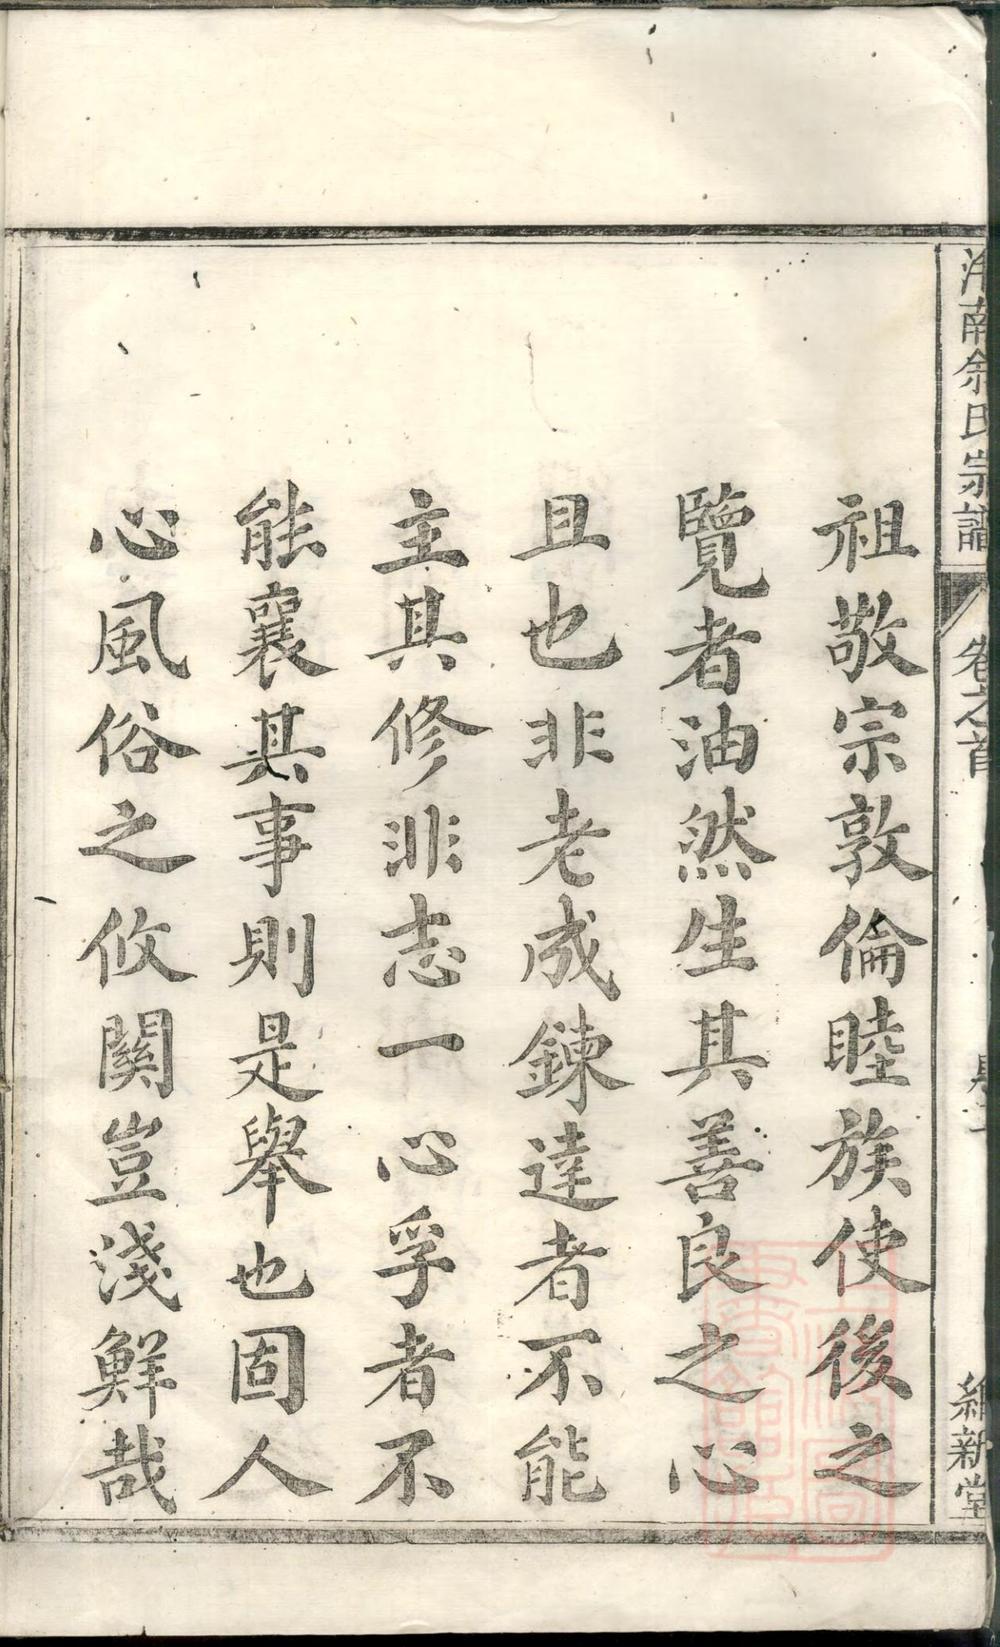 南余氏宗譜
卷之首
維新堂
祖敬宗敦倫睦族使後之
覽者油然生其善良之心
且也非老成鍊達者不能
主其修非志一心孚者不
能襄其事則是舉也固人
心風俗之攸關豈淺鮮哉